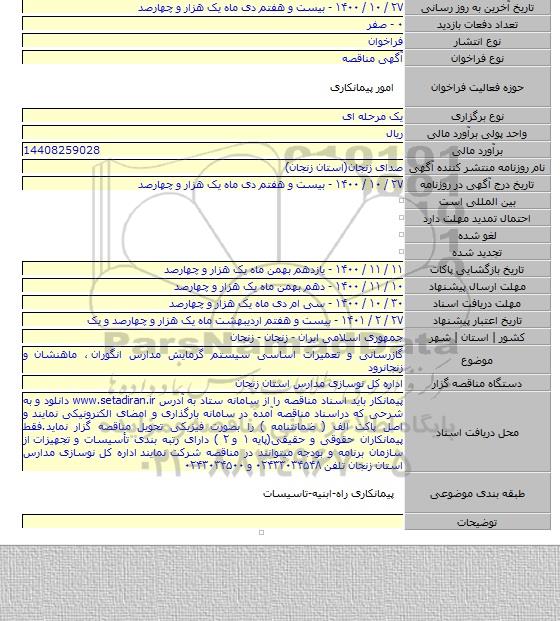 تاریخ آخرین به روز رسانی ۲۷ / ۱۰ / ۱۴۰۰ - بیست و هفتم دی ماه یک هزار و چهارصد
تعداد دفعات بازدید ۰ - صفر
نوع انتشار فراخوان
نوع فراخوان آگهی مناقصه
حوزه فعالیت فراخوان امور پیمانکاری
نوع برگزاری یک مرحله ای
واحد پولی برآورد مالی ریال
برآورد مالی 14408259028
نام روزنامه منتشر کننده آگهی صدای زنجان(استان زنجان)
تاریخ درج آگهی در روزنامه ۲۷ / ۱۰ / ۱۴۰۰ - بیست و هفتم دی ماه یک هزار و چهارصد
بین المللی است
احتمال تمدید مهلت دارد
لغو شده
تجدید شده
تاریخ بازگشایی پاکات ۱۱ / ۱۱ / ۱۴۰۰ - یازدهم بهمن ماه یک هزار و چهارصد
مهلت ارسال پیشنهاد ۱۰ / ۱۱ / ۱۴۰۰ - دهم بهمن ماه یک هزار و چهارصد
مهلت دریافت اسناد ۳۰ / ۱۰ / ۱۴۰۰ - سی ام دی ماه یک هزار و چهارصد
تاریخ اعتبار پیشنهاد ۲۷ / ۲ / ۱۴۰۱ - بیست و هفتم اردیبهشت ماه یک هزار و چهارصد و یک
کشور | استان | شهر جمهوری اسلامی ایران - زنجان - زنجان
موضوع گازرسانی و تعمیرات اساسی سیستم گرمایش مدارس انگوران، ماهنشان و
زنجانرود
دستگاه مناقصه گزار اداره کل نوسازی مدارس استان زنجان
محل دریافت اسناد پیمانکار باید اسناد مناقصه را از سامانه ستاد به آدرس www.setadiran.ir دانلود و به
شرحی که دراسناد مناقصه آمده در سامانه بارگذاری و امضای الکترونیکی نمایند و
اصل پاکت الف ( ضمانتنامه ) را بصورت فیزیکی تحویل مناقصه گزار نماید.فقط
پیمانکاران حقوقی و حقیقی(پایه ۱ و ۲ ) دارای رتبه بندی تأسیسات و تجهیزات از
سازمان برنامه و بودجه میتوانند در مناقصه شرکت نمایند اداره کل نوسازی مدارس
استان زنجان تلفن ۰۲۴۳۳۰۳۴۵۴۸ و ۰۲۴۳۰۳۴۵۰۰
طبقه بندی موضوعی پیمانکاری راه-ابنیه-تاسیسات
توضیحات
ParsNamadData